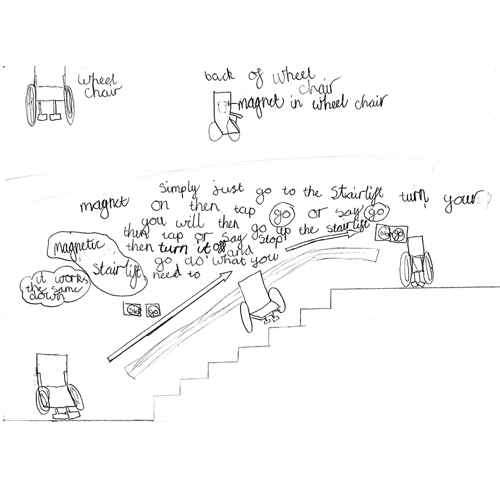 wheel
chair
back of wheel
chair
magnet in wheel chair
simply just go to the stairlift turn your
magnet on then tap go or say go
you will then go up the stairlift
then tap or say stop
then turn it off and
go do what you
need to
magnetic
stairlift
it works
the same
down
go